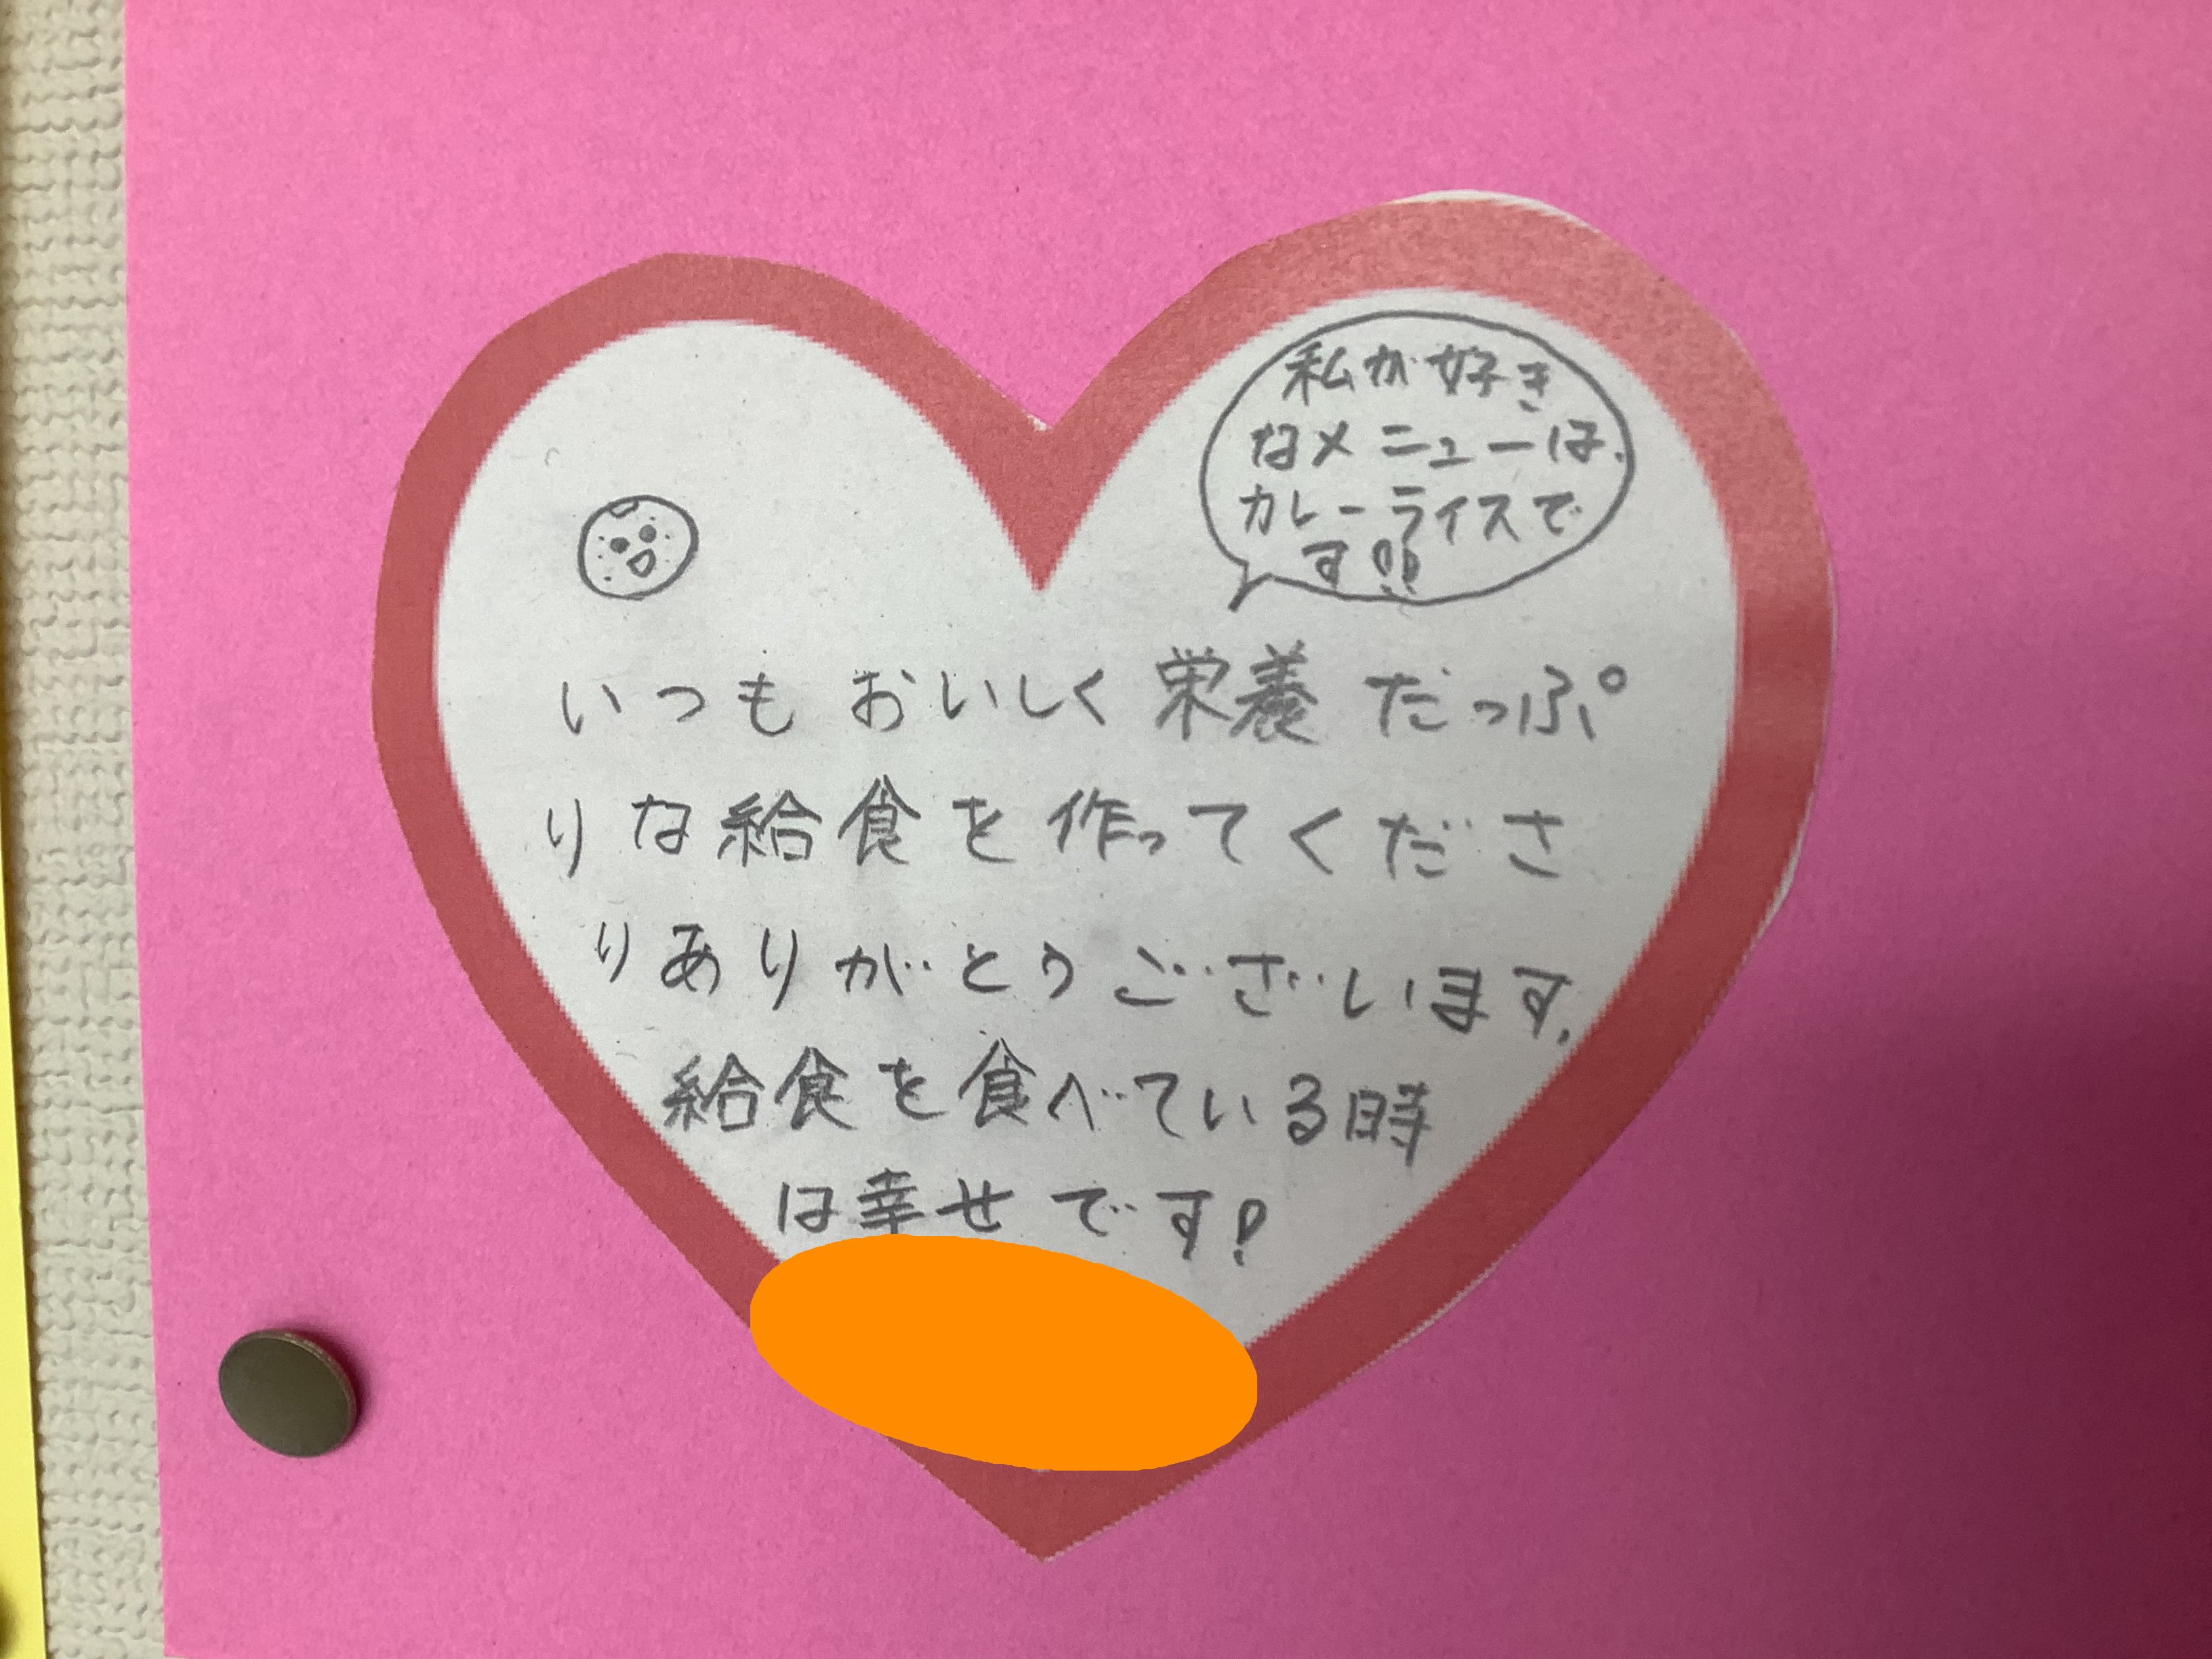 私が好き
なメニューは、
カレーライスで
す!!
いつもおいしく栄養だっぷ
りな給食を作ってくださ
りありがとうございます。
給食を食べている時
は幸せです!